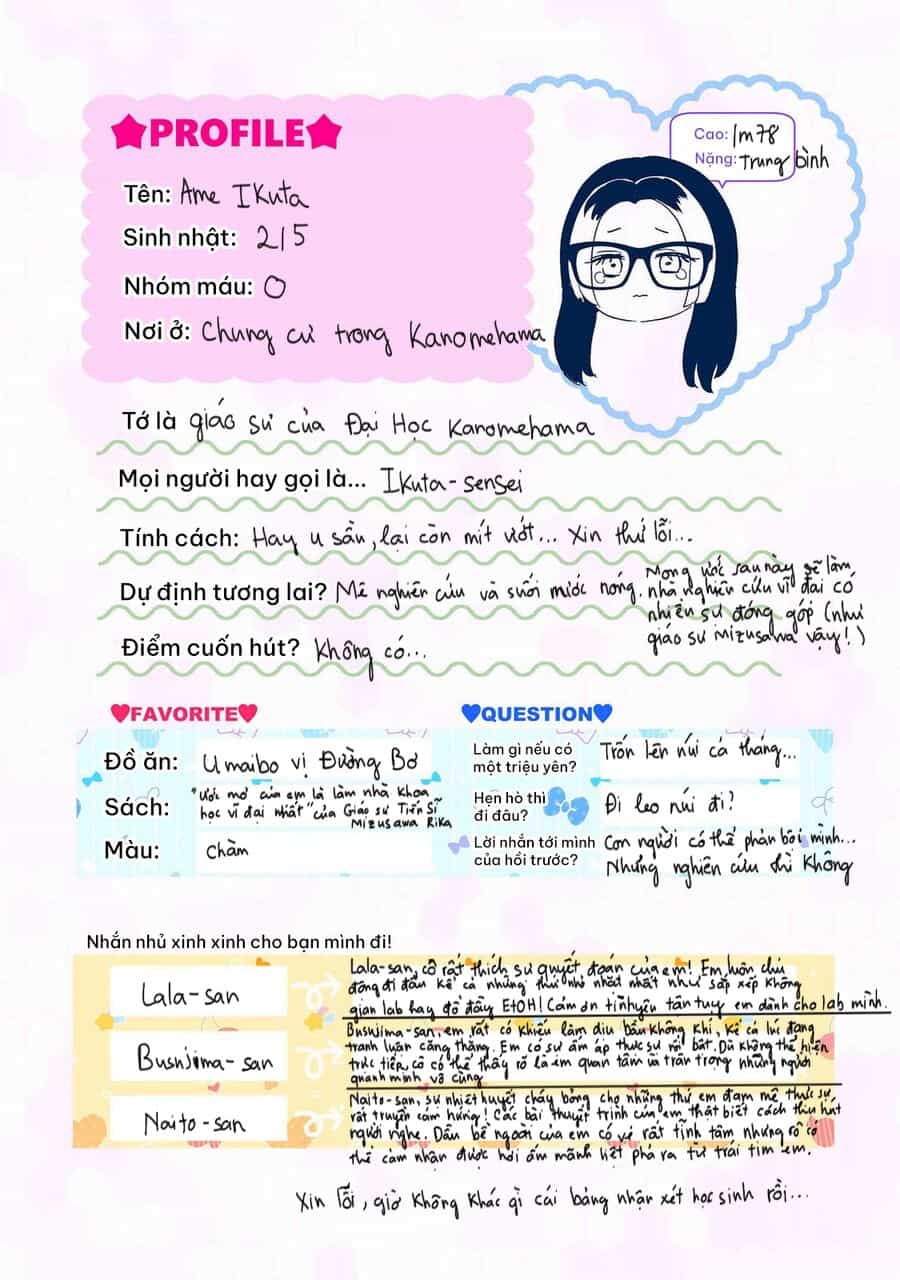 PROFILE
Cao: 1m78
Nặng: Trung bình
Tên: Ame Ikuta
Sinh nhật: 2/5
Nhóm máu: O
Nơi ở: Chung cư trong Kanomehama
Tớ là giáo sư của Đại Học Kanomehama
Mọi người hay gọi là... Ikuta-sensei
Tính cách: Hay u sầu, lại còn mít ướt... Xin thứ lỗi...
Dự định tương lai? Mê nghiên cứu và suối nước nóng. Mong ước sau này sẽ làm
nhà nghiên cứu vĩ đại có
nhiều sự đóng góp (như
giáo sư Mizusawa vậy!)
Điểm cuốn hút? Không có...
FAVORITE
Đồ ăn: Umaibo vị Đường Bơ
Sách: "Ước mơ của em là làm nhà khoa
học vĩ đại nhất" của Giáo sư Tiến Sĩ
Mizusawa Rika
Màu: Chàm
QUESTION
Làm gì nếu có
một triệu yên? Trốn lên núi cả tháng...
Hẹn hò thì
đi đâu? Đi leo núi đi?
Lời nhắn tới mình
của hồi trước? Con người có thể phản bội mình...
Nhưng nghiên cứu thì không
Nhắn nhủ xinh xinh cho bạn mình đi!
Lala-san
Lala-san, cô rất thích sự quyết đoán của em! Em luôn chủ
động đi đầu kể cả những thứ nhỏ nhặt nhất như sắp xếp không
gian lab hay đổ đầy EtOH! Cảm ơn tình yêu tận tụy em dành cho lab mình.
Bushjima-san
Bushjima-san, em rất có khiếu làm dịu bầu không khí, kể cả lúc đang
tranh luận căng thẳng. Em có sự ấm áp thực sự nổi bật. Dù không thể hiện
trực tiếp, cô có thể thấy rõ là em quan tâm và trân trọng những người
quanh mình vô cùng
Naito-san
Naito-san, sự nhiệt huyết cháy bỏng cho những thứ em đam mê thực sự
rất truyền cảm hứng! Các bài thuyết trình của em thật biết cách thu hút
người nghe. Dẫu bề ngoài của em có vẻ rất tịnh tâm nhưng rõ có
thể cảm nhận được hơi ấm mãnh liệt phả ra từ trái tim em.
Xin lỗi, giờ không khác gì cái bảng nhận xét học sinh rồi...